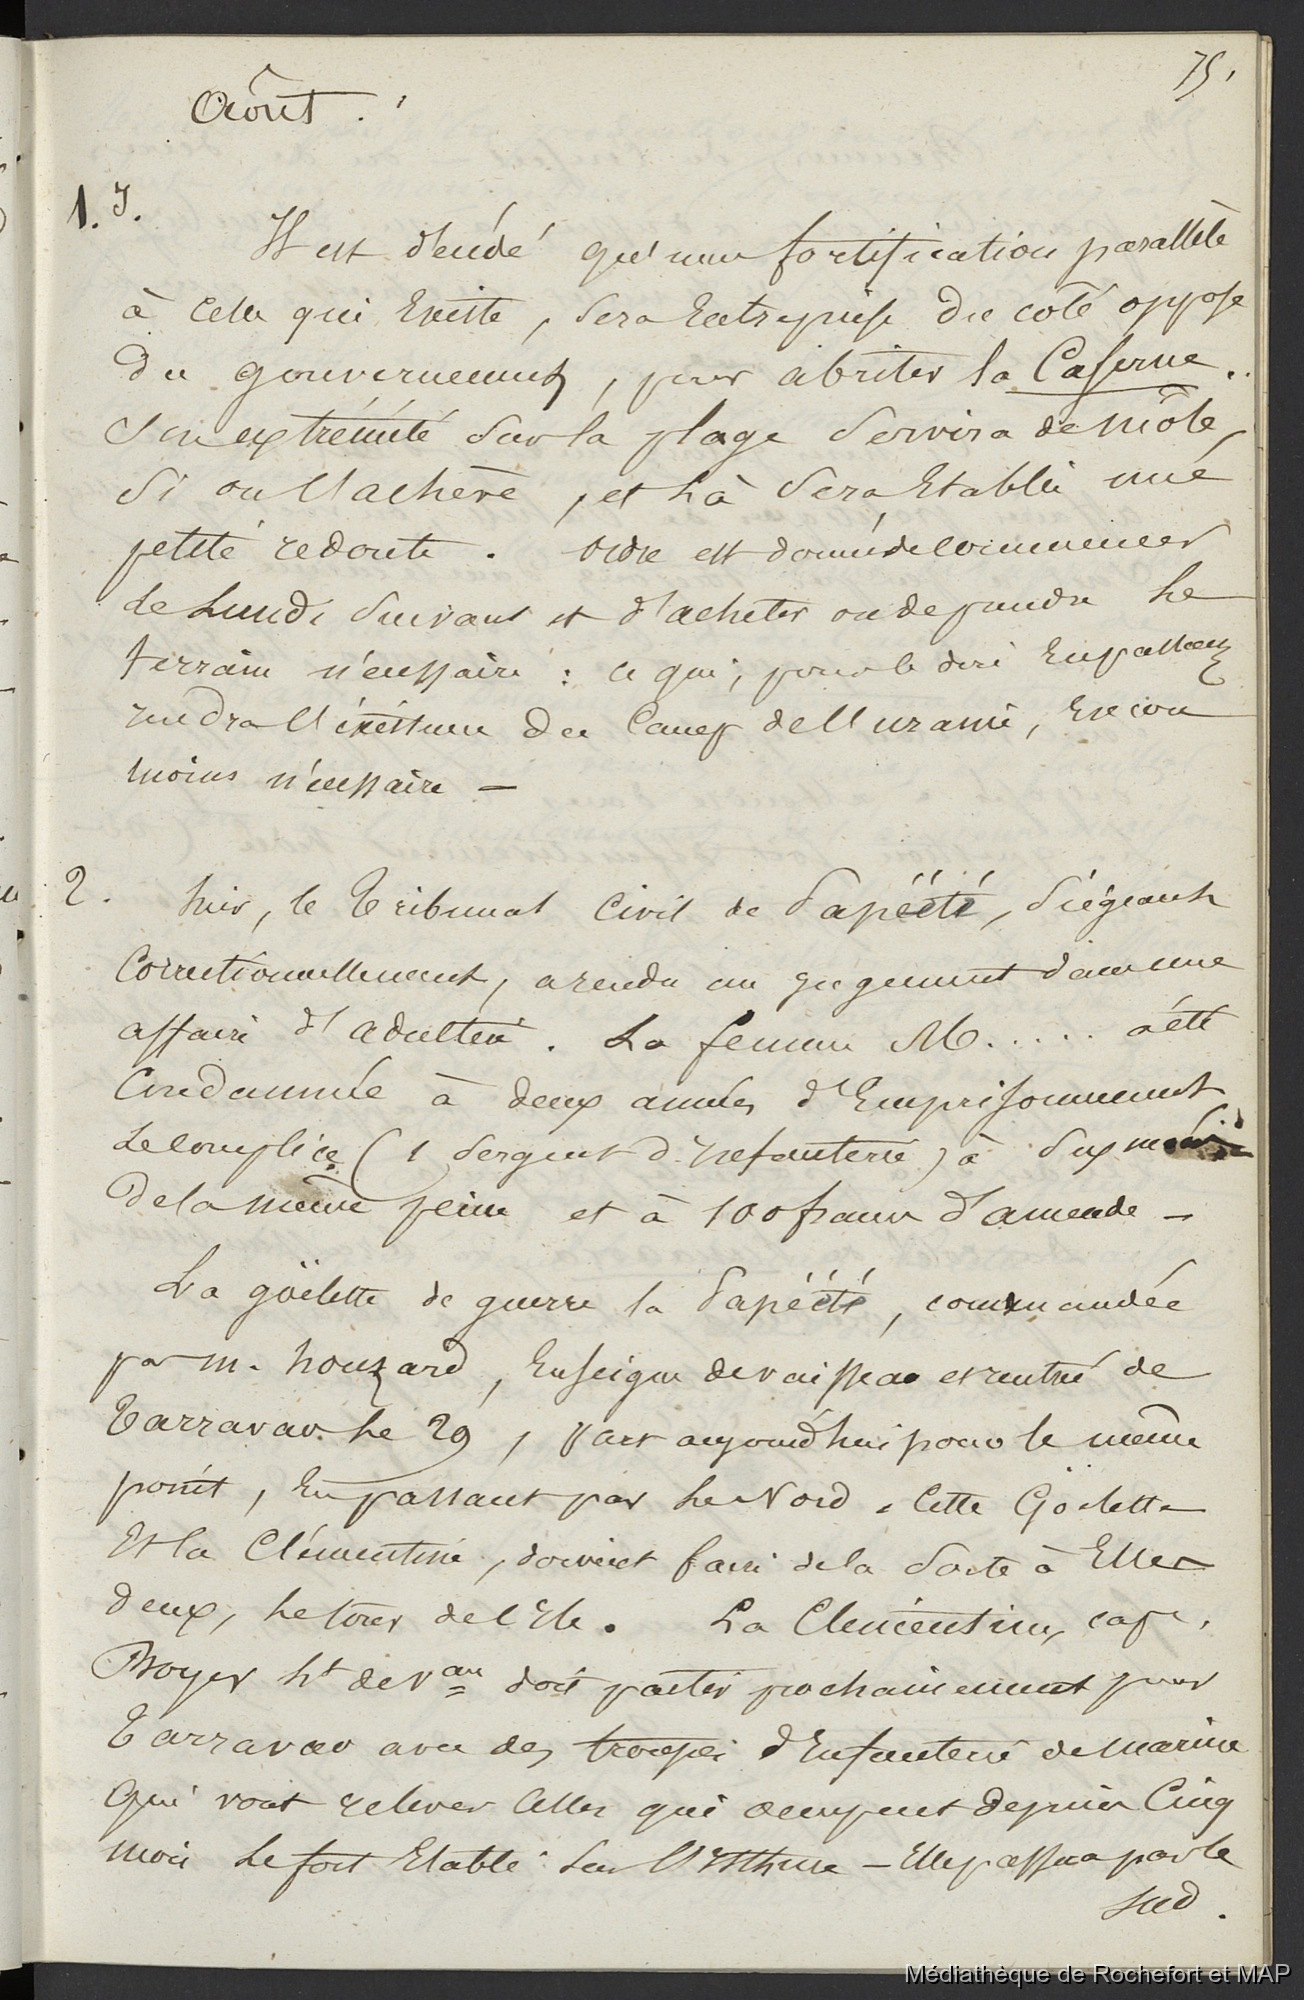 75.
Août.
1. J.
Il est décidé qu'une fortification parallèle
à celle qui Existe, sera Entreprise du côté opposé
du gouvernement, pour abriter la Caserne.
Son extrémité sur la plage servira de môle,
si on l'achève, et là sera Etablie une
petite redoute. Ordre est donné de commencer
le Lundi suivant et d'acheter ou de prendre le
terrain nécessaire : ce qui, pour le dire En passant
rendra l'existence du Camp de l'uranie, Encore
moins nécessaire —
2. hier, le Tribunal Civil de Papéété, siégeant
Correctionnellement, a rendu un jugement dans une
affaire d'adultère. La femme M..... a été
Condamnée à deux années d'Emprisonnement
Le complice (1 sergent d'Infanterie) à six mois
de la même peine et à 100 francs d'amende —
La goëlette de guerre la Papéété, commandée
par m. houzard, Enseigne de vaisseau et rentré de
Tarravao le 29, part aujourd'hui pour le même
point, En passant par le Nord. Cette Goëlette
Et la Clémentine, doivent faire de la sorte à Elles
deux, le tour de l'Ile. La Clémentine, cape.
Boyer Lt de Veau doit partir prochainement pour
Tarravao avec des troupes d'Infanterie de marine
qui vont relever Celles qui occupent depuis Cinq
mois le fort Etabli sur l'Isthme — Elle passera par le
sud.
Médiathèque de Rochefort et MAP